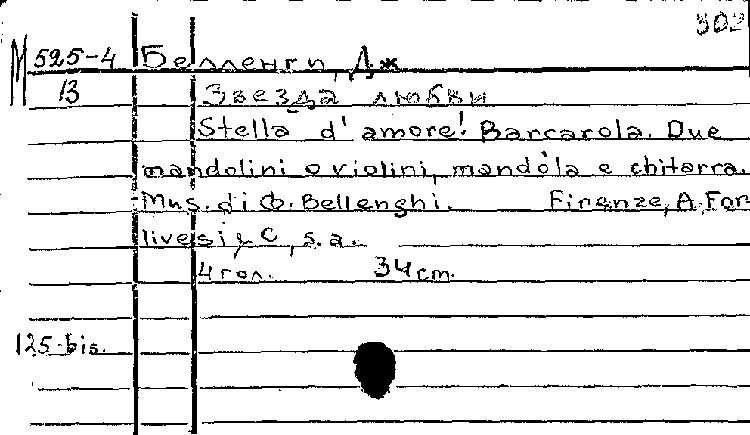 302
М 525-4 Белленги, Дж
13 Звезда любви
Stella d'amore! Barcarola. Due
mandolini o violini, mandola e chitarra.
Mus. di G. Bellenghi. Firenze, A. For
livesi & C, s.a.
4 гол. 34 cm.
125-bis.